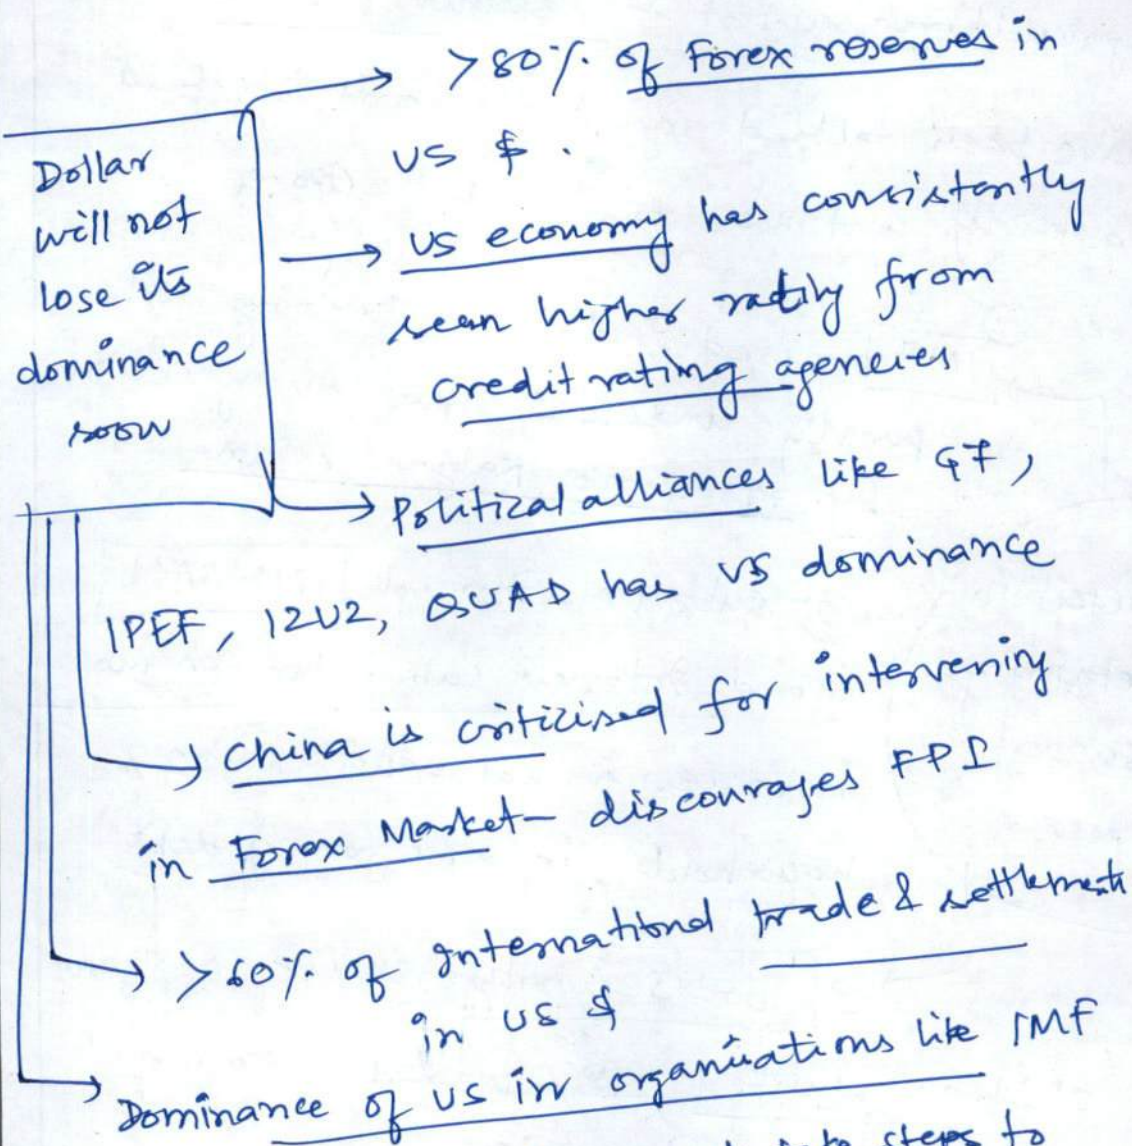 > 80% of Forex reserves in
US $.
Dollar
will not
lose its
dominance
soon
US economy has consistently
seen higher rating from
credit rating agencies
Political alliances like G7,
IPEF, I2U2, QUAD has US dominance
China is criticised for intervening
in Forex Market – discourages FPI
> 60% of International trade & settlements
in US $
Dominance of US in organisations like IMF
steps to